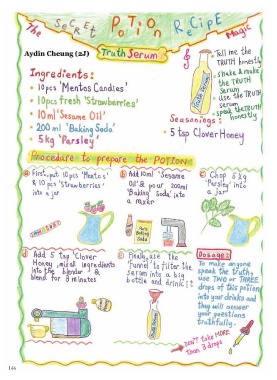 The SECRET POTION RECIPE Magic
Aydin Cheung (2J)
Truth Serum
Tell me the
TRUTH honestly
• shake & make
the TRUTH
Serum
• Use the TRUTH
serum
• speak the TRUTH
honestly
Ingredients:
• 10pcs 'Mentos Candies'
• 10pcs fresh 'Strawberries'
• 10ml 'Sesame Oil'
• 200 ml 'Baking Soda'
• 5kg 'Parsley'
Seasonings:
• 5 tsp Clover Honey
Procedure to prepare the POTION:
a First, put 10pcs 'Mentos'
& 10 pcs 'Strawberries'
into a jar
b Add 10ml 'Sesame
Oil' & pour 200ml
'Baking Soda' into
a mixer
c Chop 5kg
'Parsley' into
a jar
d Add 5 tsp 'Clover
Honey', mix all ingredients
into the blender &
blend for 3 minutes
e Finally, use the
funnel to filter the
serum into a big
bottle and drink it
Dosage:
To make anyone
speak the truth,
use TWO or THREE
drops of this potion
into your drinks and
they will answer
your questions
truthfully.
DON'T take MORE
than 3 drops
146